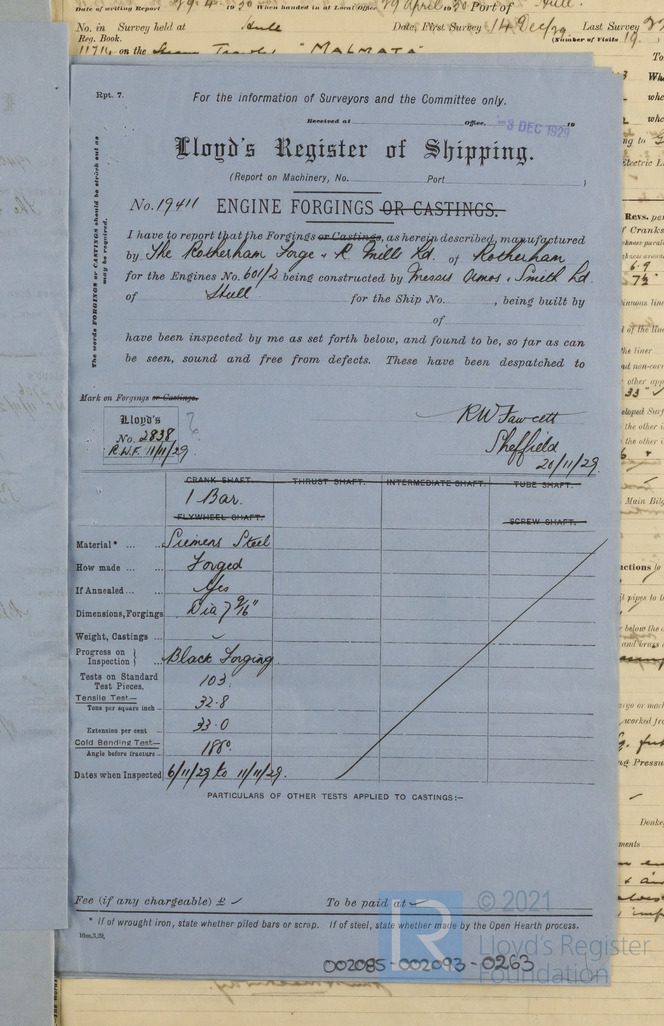 Date of writing Report 29.4.1930 When handed in at Local Office 29 April 1930 Port of Hull
No. in Survey held at Hull Date, First Survey 14 Dec/29 Last Survey
Reg. Book. (Number of Visits 19
11714 on the Steam Trawler "MALMATA"
Rpt. 7.
For the information of Surveyors and the Committee only.
Received at Office, -3 DEC 1929 19
Lloyd's Register of Shipping.
(Report on Machinery, No. Port )
No. 19411 ENGINE FORGINGS OR CASTINGS.
The words FORGINGS or CASTINGS should be struck out as
may be required.
I have to report that the Forgings or Castings, as herein described, manufactured
by The Rotherham Forge & R Mills Ld. of Rotherham
for the Engines No. 601/2 being constructed by Messrs Amos & Smith Ld.
of Hull for the Ship No. , being built by
of
have been inspected by me as set forth below, and found to be, so far as can
be seen, sound and free from defects. These have been despatched to
Mark on Forgings or Castings.
Lloyd's
No. 2838
R.W.F. 11/11/29.
?
RW Fawcett
Sheffield
20/11/29.
CRANK SHAFT. THRUST SHAFT. INTERMEDIATE SHAFT. TUBE SHAFT.
1 Bar.
FLYWHEEL SHAFT. SCREW SHAFT.
Material* ... ... Siemens Steel
How made ... ... Forged
If Annealed ... ... Yes
Dimensions, Forgings Dia 7 9/16"
Weight, Castings ...
Progress on
Inspection } ... Black Forging
Tests on Standard
Test Pieces. 103.
Tensile Test—
Tons per square inch .. 32.8
Extension per cent .. 33.0
Cold Bending Test—
Angle before fracture .. 180°.
Dates when Inspected 6/11/29 to 11/11/29.
PARTICULARS OF OTHER TESTS APPLIED TO CASTINGS:—
Fee (if any chargeable) £ To be paid at
* If of wrought iron, state whether piled bars or scrap. If of steel, state whether made by the Open Hearth process.
10m.3.29.
002085-002093-0263
© 2021
Lloyd's Register
Foundation